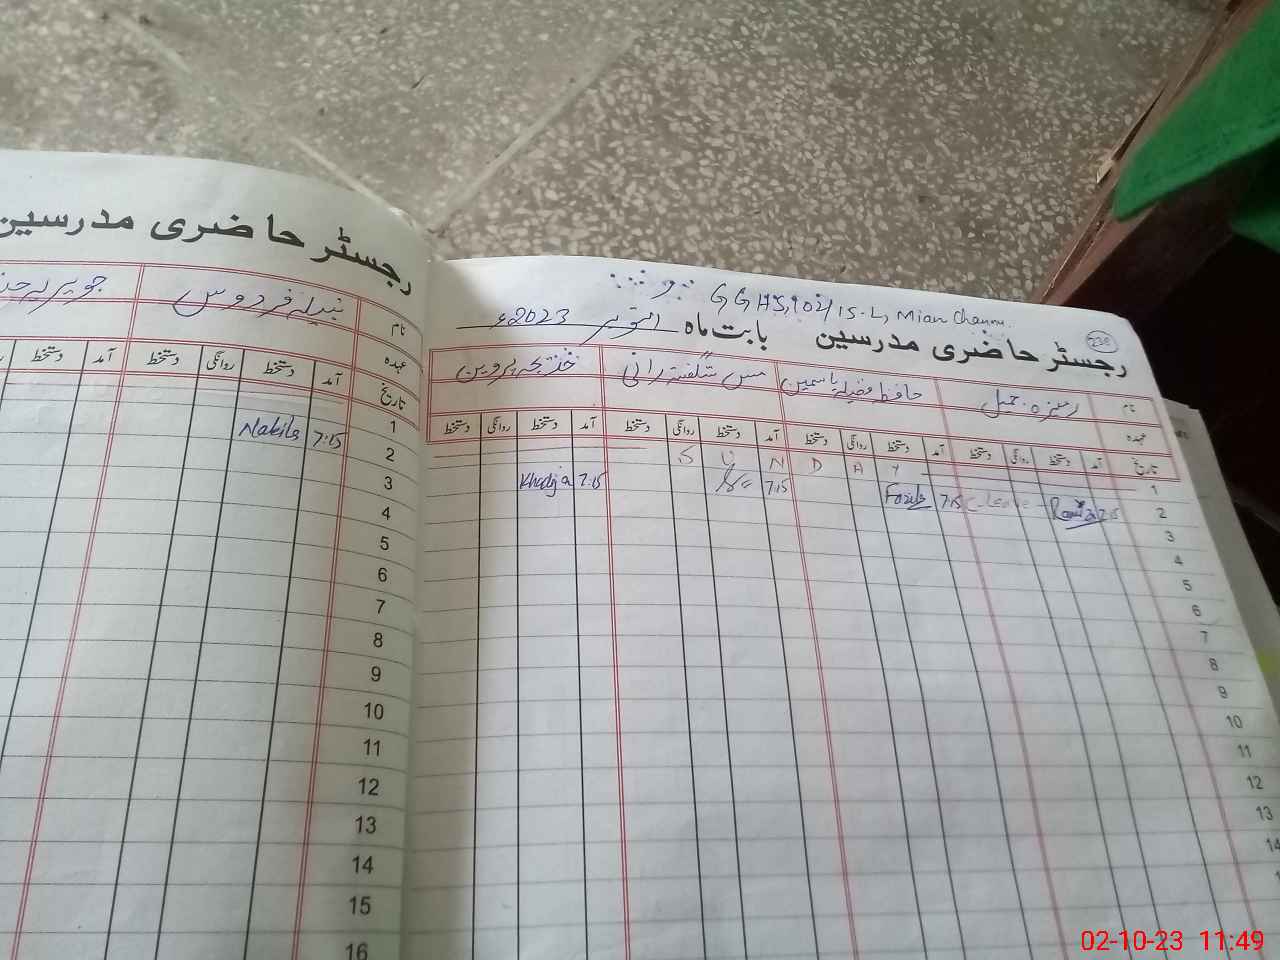 GGHS, 102/15-L, Mian Channu.
238
رجسٹر حاضری مدرسین بابت ماہ اکتوبر 2023ء
نام رمیزہ جمیل حافظہ فضیلہ یاسمین مس شگفتہ رانی خدیجہ پروین
عہدہ
تاریخ آمد دستخط روانگی دستخط آمد دستخط روانگی دستخط آمد دستخط روانگی دستخط آمد دستخط روانگی دستخط
1 S U N D A Y
2 Khadija 7:15 7:15 Fazila 7:15 C. Leave Ramiza 7:15
3
4
5
6
7
8
9
10
11
12
13
14
رجسٹر حاضری مدرسین
نام نبیلہ فردوس جویریہ
عہدہ
تاریخ آمد دستخط روانگی دستخط آمد دستخط
1
2 Nabila 7:15
3
4
5
6
7
8
9
10
11
12
13
14
15
16
02-10-23 11:49